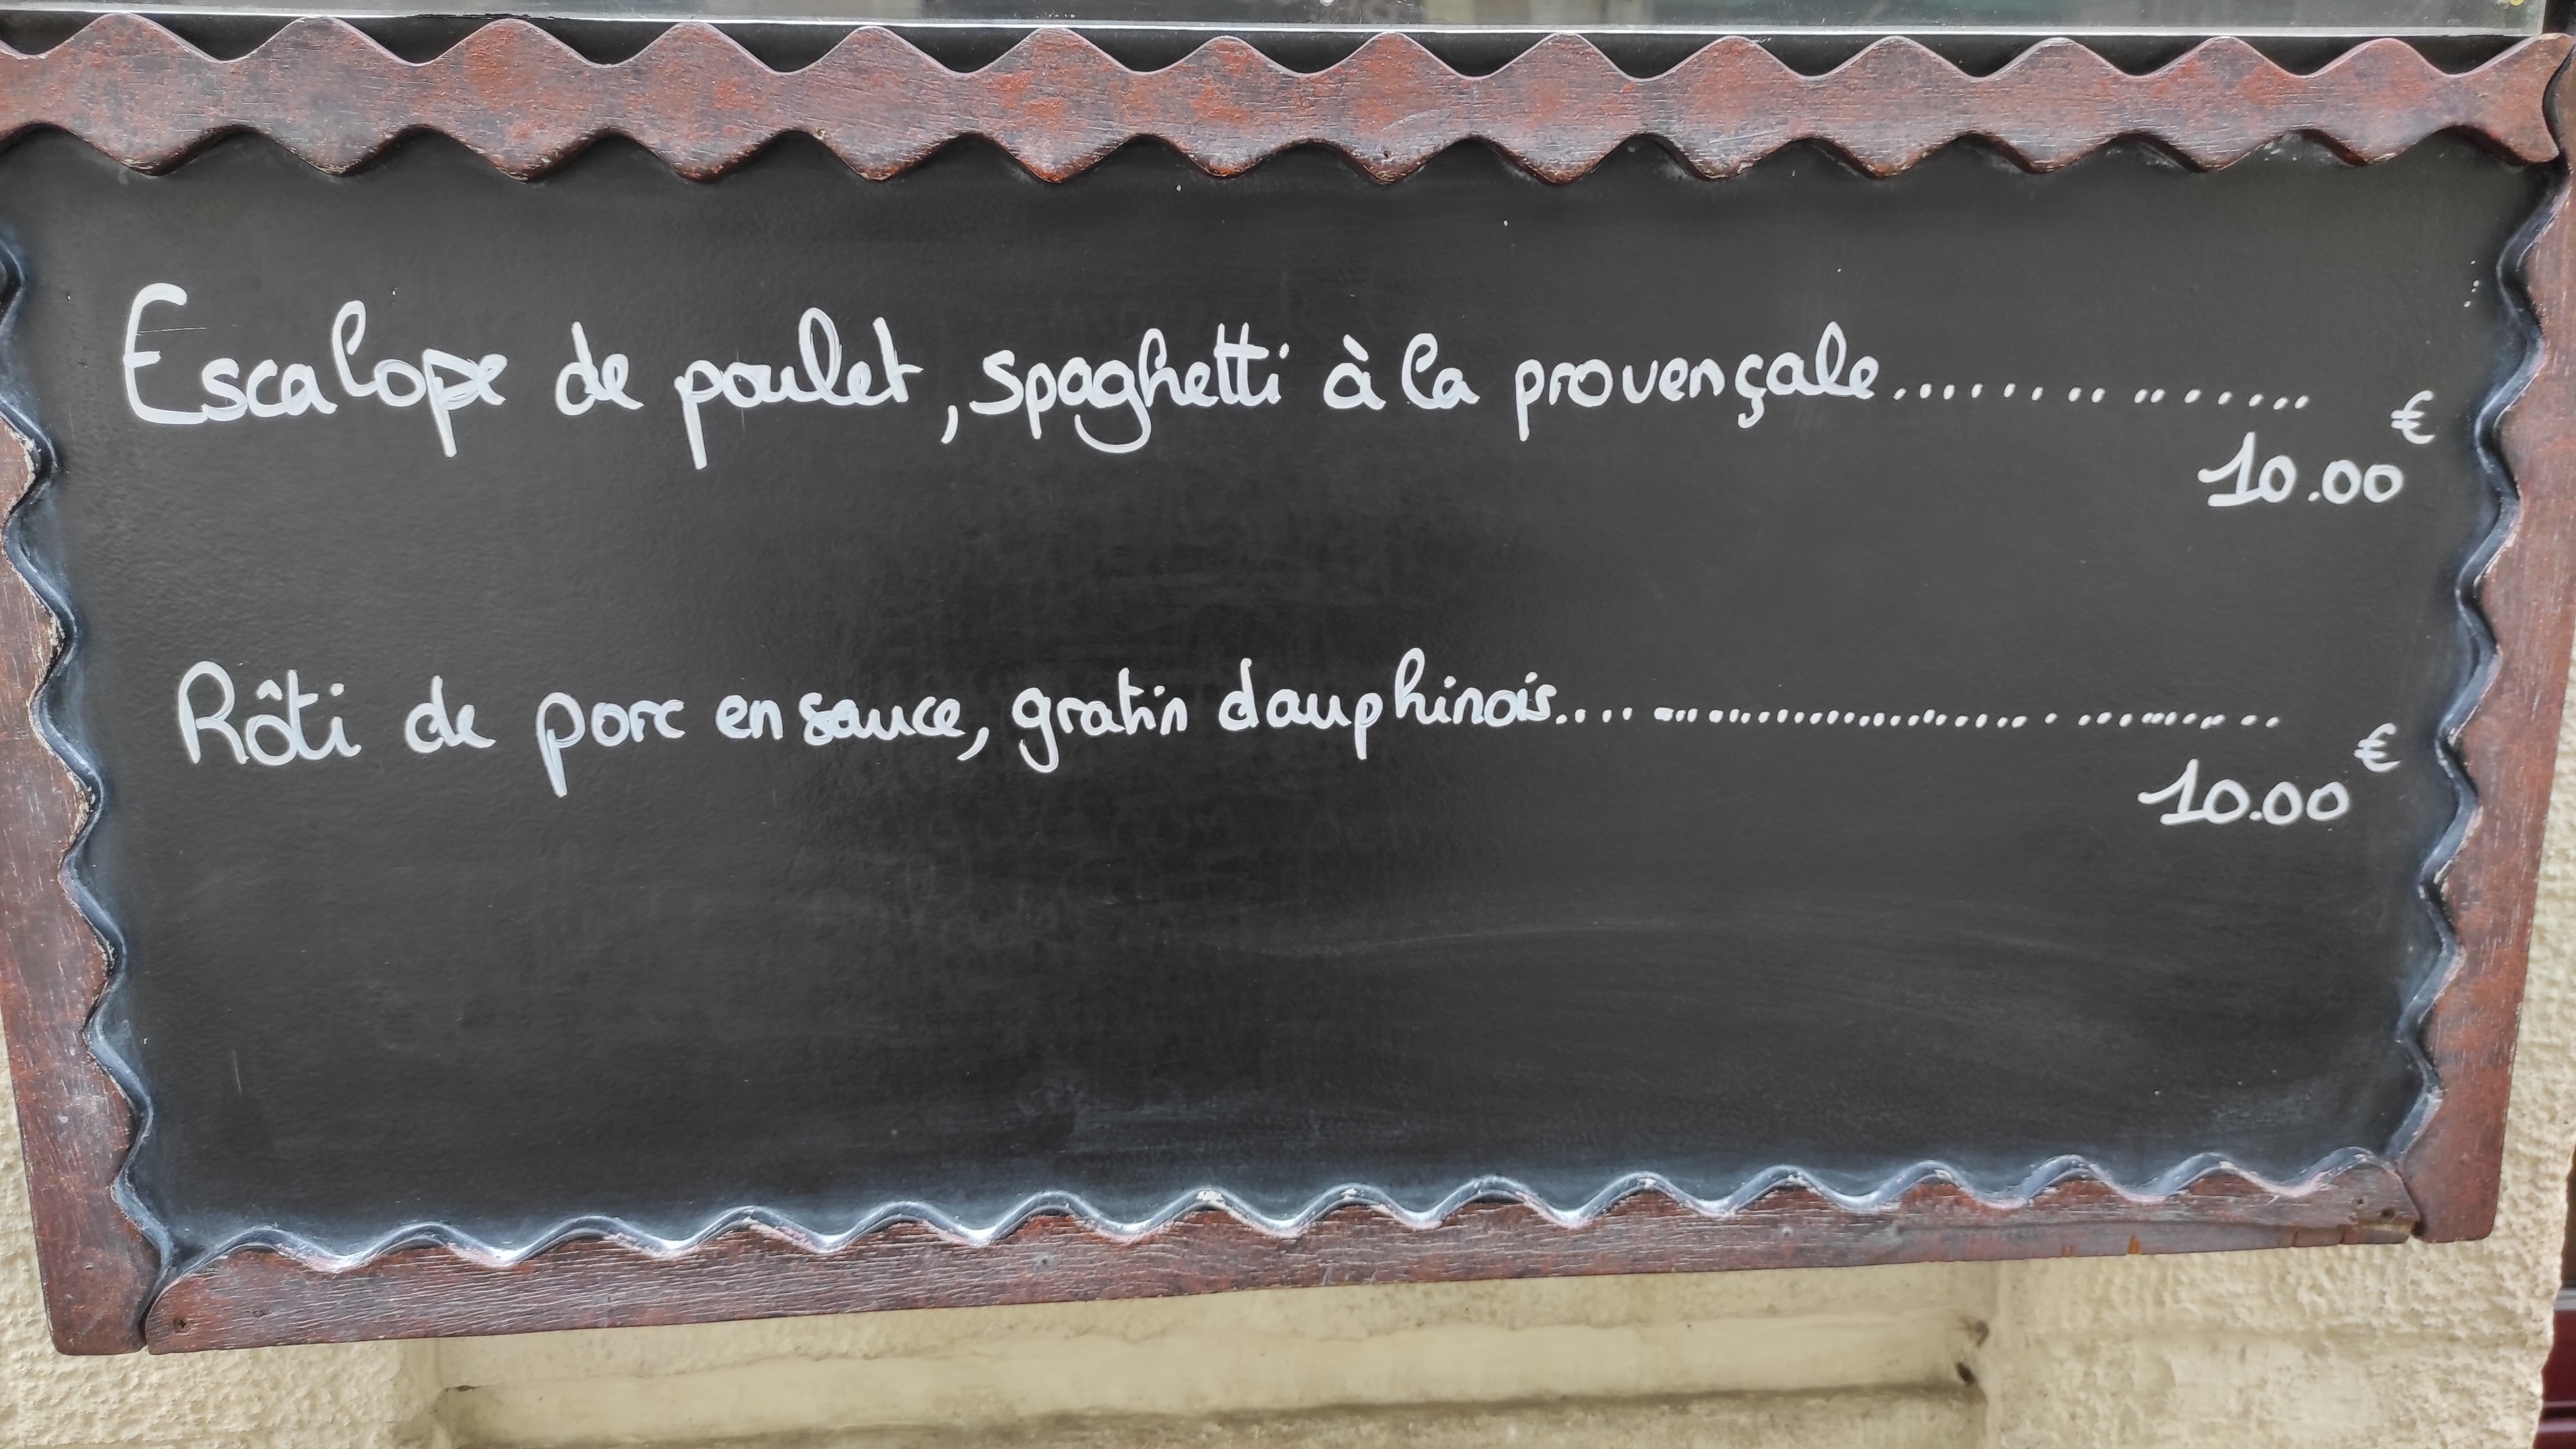 Escalope de poulet, spaghetti à la provençale..................
10.00€
Rôti de porc en sauce, gratin dauphinois........................................
10.00€